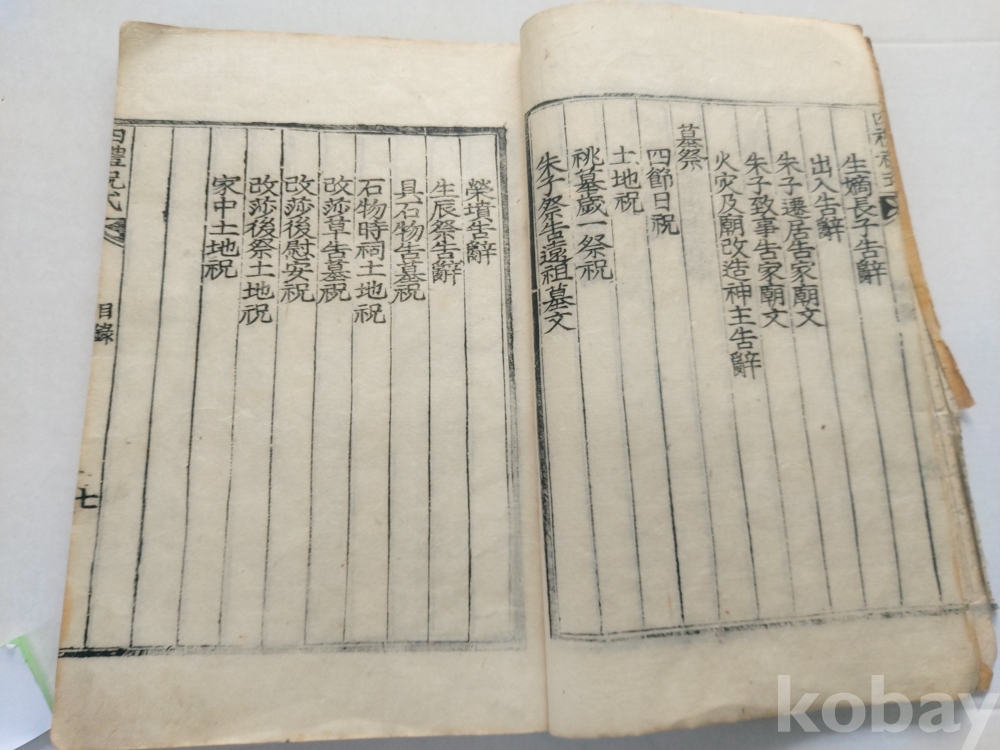 四禮祝式
生嫡長子告辭
出入告辭
朱子遷居告家廟文
朱子致事告家廟文
火灾及廟改造神主告辭
墓祭
四節日祝
土地祝
祧墓歲一祭祝
朱子祭告遠祖墓文
榮墳告辭
生辰祭告辭
具石物告墓祝
石物時祠土地祝
改莎草告墓祝
改莎後慰安祝
改莎後祭土地祝
家中土地祝
四禮祝式
目錄
七
kobay